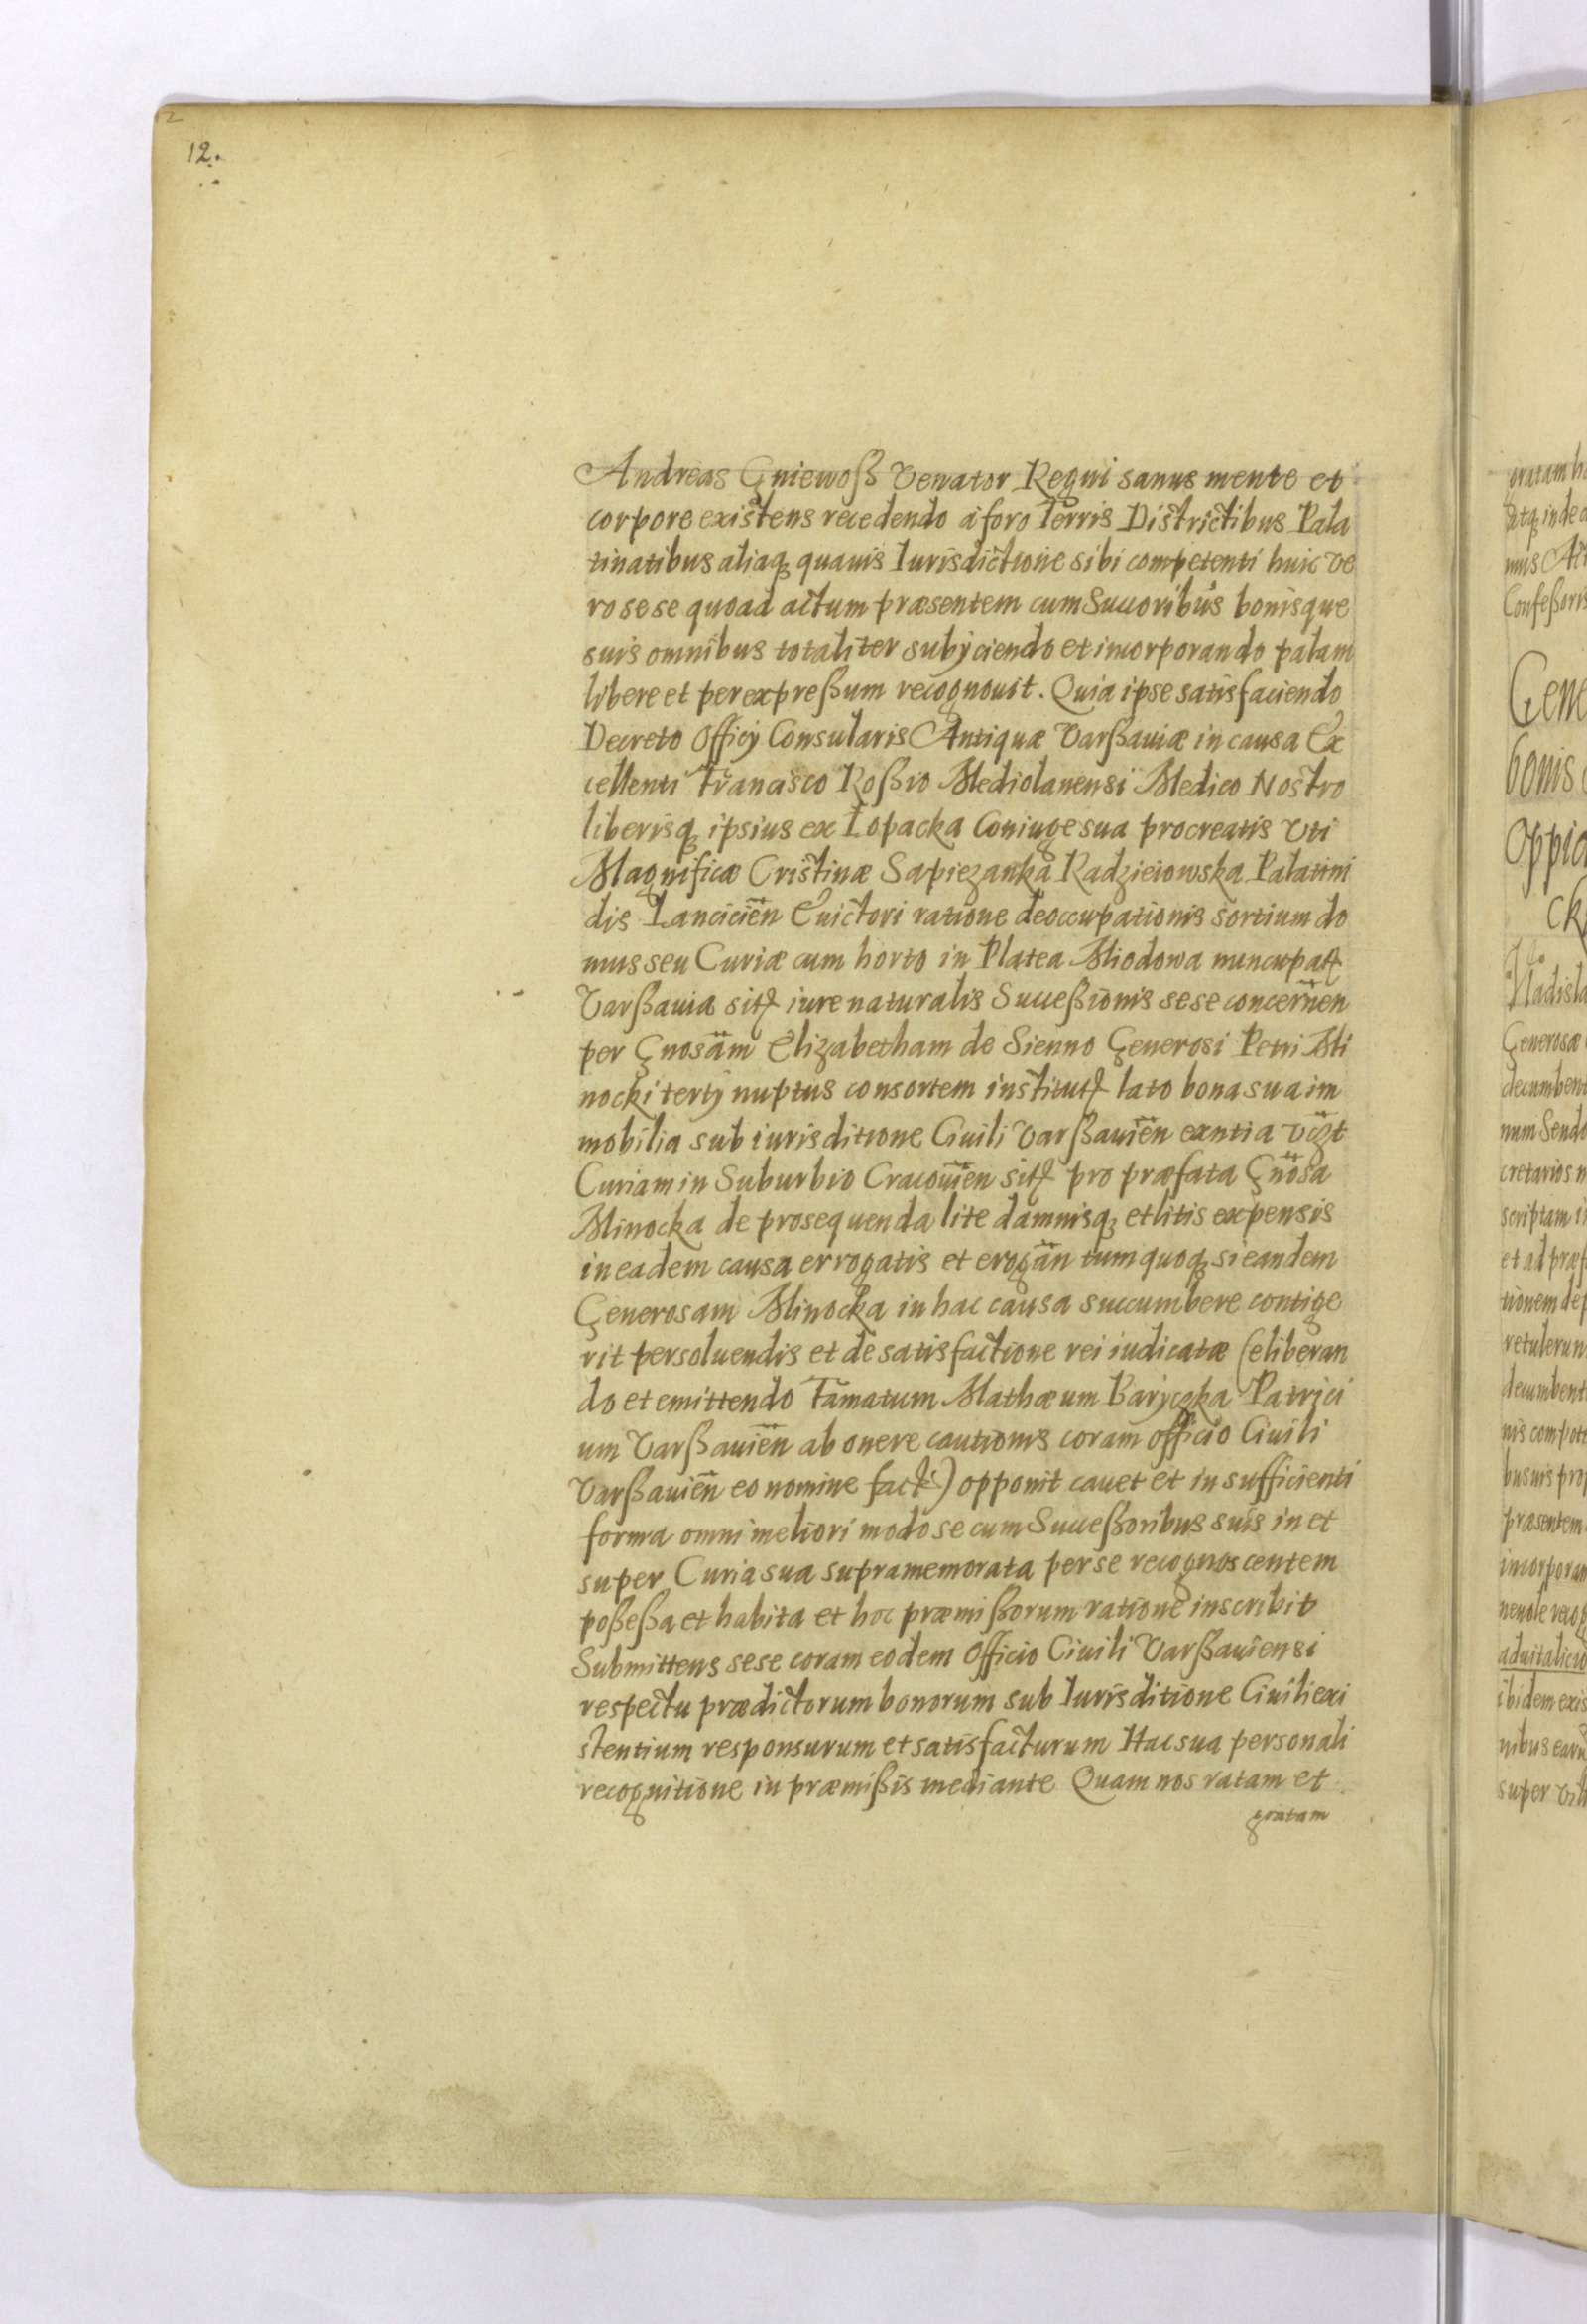 12.
Andreas Gniewoß Venator Regni sanus mente et
corpore existens recedendo a foro Terris Districtibus Pala
tinatibus aliaq quauis Iurisdictione sibi competenti huic ve
ro sese quoad actum præsentem cum Succoribus bonisque
suis omnibus totaliter subyciendo et incorporando palam
libere et per expreßum recognouit. Quia ipse satisfaciendo
Decreto Officij Consularis Antiquæ Varßauiæ in causa Ex
cellenti Francisco Roßio Mediolanensi Medico Nostro
liberisq ipsius ex Łopacka Coniuge sua procreatis Vti
Magnificæ Cristinæ Sapiezanka Radzieiowska Palatini
dis Lancicien Euictori ratione deoccupationis sortium do
mus seu Curiæ cum horto in Platea Miodowa nuncupat
Varßauia sit iure naturalis Succeßionis sese concernen
per Gnosam Elizabetham de Sienno Generosi Petri Mli
nocki tertij nuptus consortem institut lato bona sua im
mobilia sub iurisditione Ciuili Varßauien exntia vczt
Curiam in Suburbio Cracouien sit pro præfata Gnosa
Mlinocka de prosequenda lite damnisq et litis expensis
in eadem causa errogatis et erogan tum quoq si eandem
Generosam Mlinocka in hac causa succumbere contige
rit persoluendis et de satisfactione rei iudicatæ (eliberan
do et emittendo Famatum Mathæum Baryczka Patrici
um Varßauien ab onere cautionis coram officio Ciuili
Varßauien eo nomine fact) opponit cauet et in sufficienti
forma omni meliori modo se cum Succeßoribus suis in et
super Curia sua supramemorata per se recognoscentem
poßeßa et habita et hoc præmißorum ratione inscribit
Submittens sese coram eodem Officio Ciuili Varßauiensi
respectu prædictorum bonorum sub Iurisditione Ciuili exi
stentium responsurum et satisfacturum Hac sua personali
recognitione in præmißis mediante Quam nos ratam et
gratam
Gene
bonis
Oppid
Generosæ
præsentem